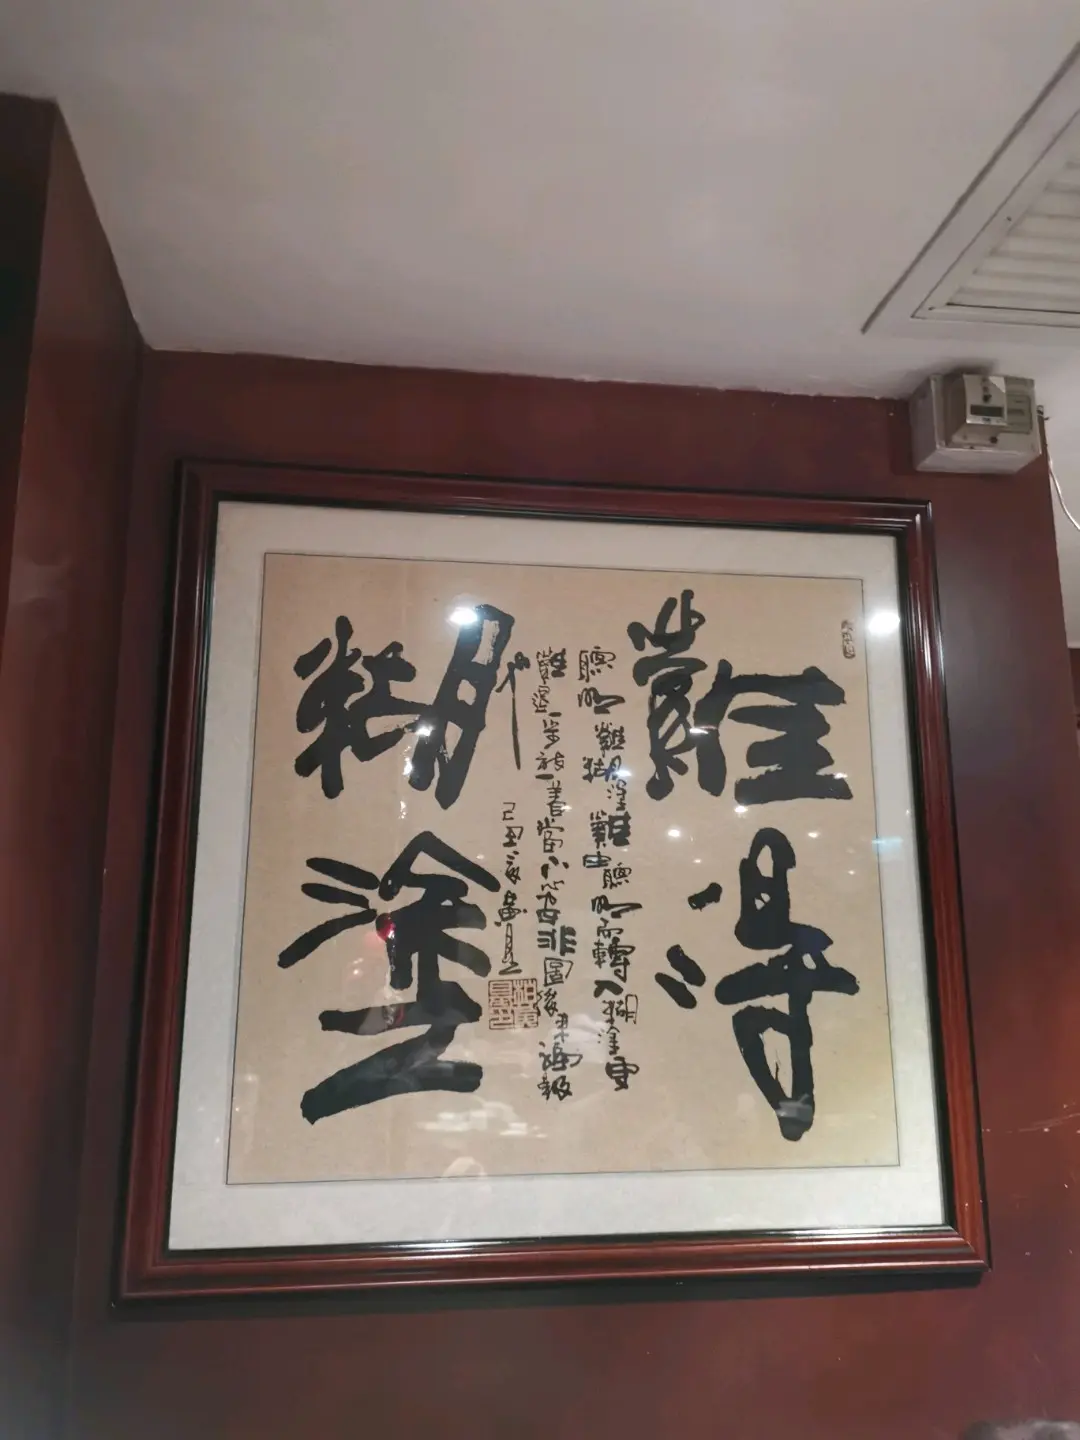 難得
聰明難糊塗難由聰明而轉入糊塗更
難退一步當下心安非圖後來福報
也
己丑
糊塗